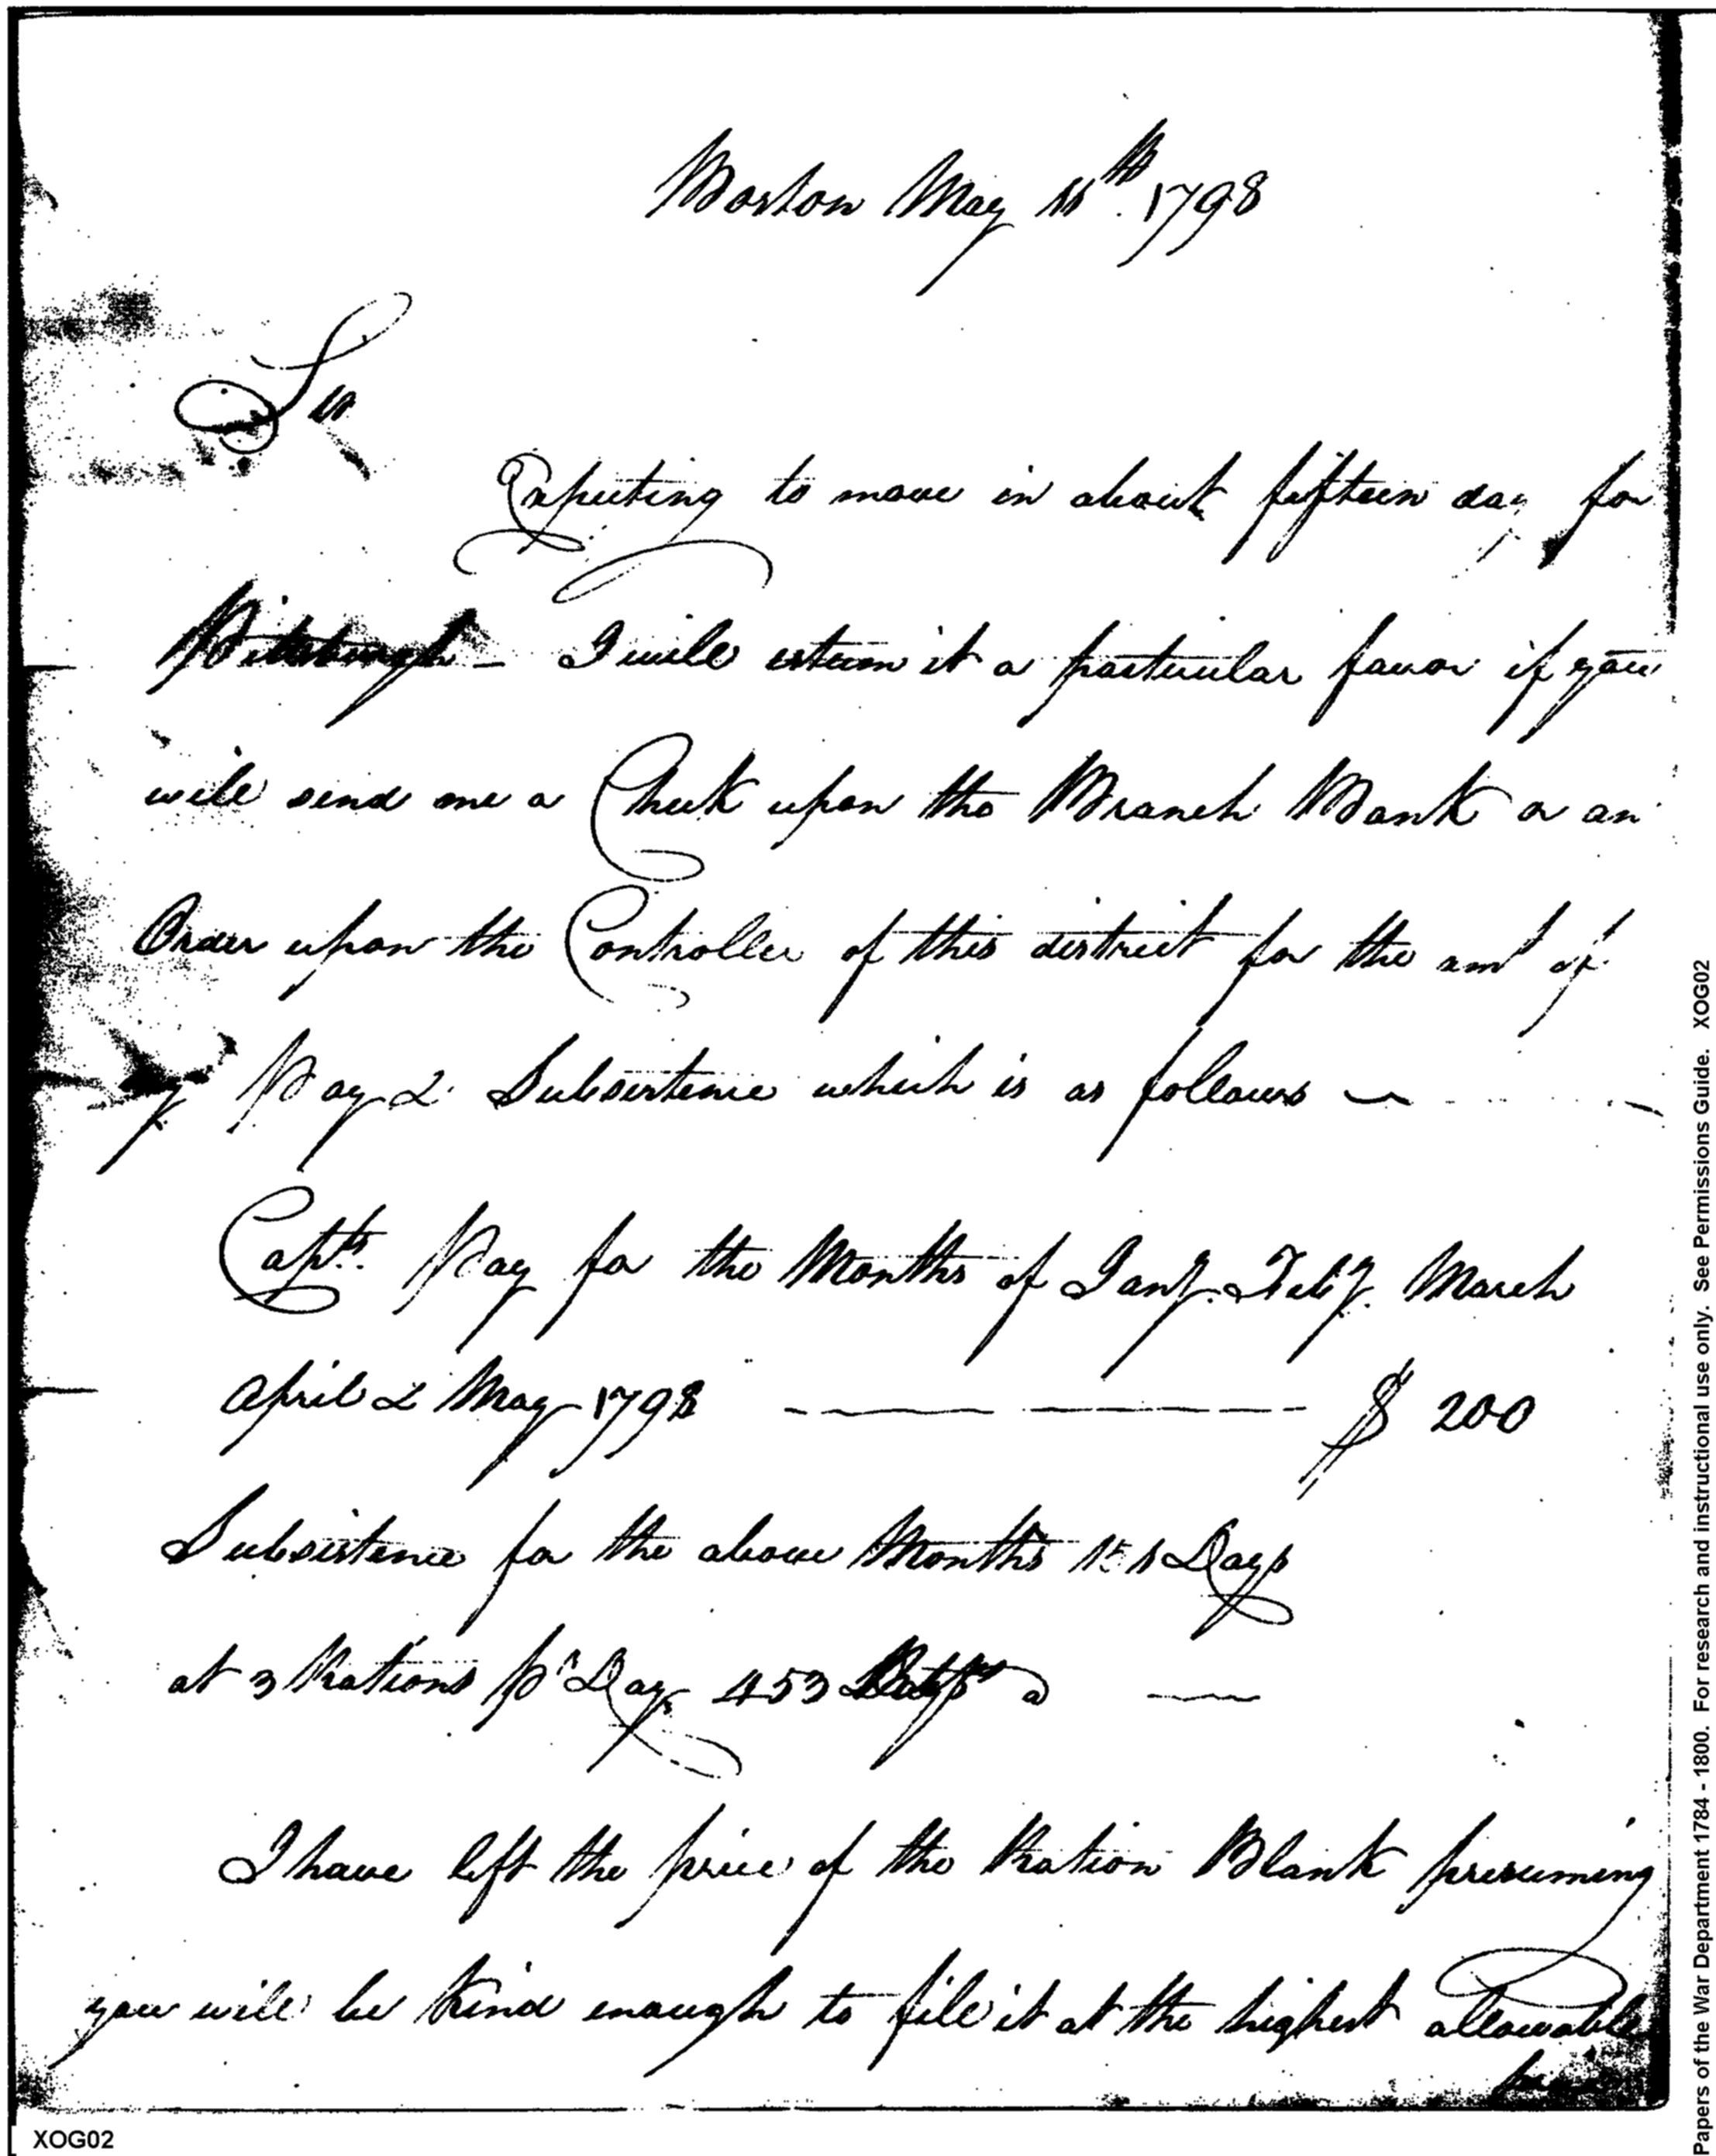 Boston May 11th. 1798
Sir
Expecting to move in about fifteen day for
Pittsburgh – I will esteem it a particular favor if you
will send me a Check upon the Branch Bank or an
Order upon the Controller of this district for the amt of
my Pay & Subsistence which is as follows
Capts. Pay for the Months of Jany. Feby. March
April & May 1798 — — — $ 200
Subsistence for the above Months 151 Days
at 3 Rations pr Day 453 a —
I have left the price of the Ration Blank presuming
you will be kind enough to fill it at the highest allowable
XOG02
Papers of the War Department 1784 - 1800. For research and instructional use only. See Permissions Guide. XOG02